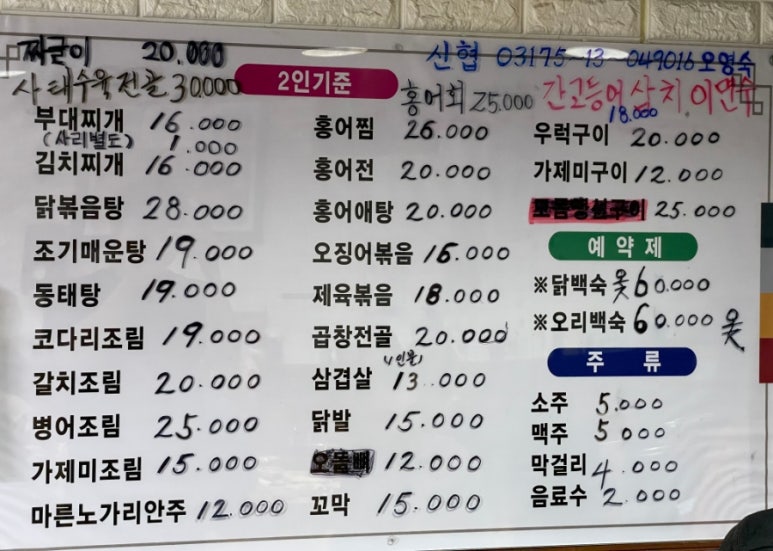 찌군이 20.000
신협 03175-13-049016 오영숙
사태수육전골 30.000
2인기준
홍어회 25.000
간고등어 삼치 이면수
18.000
부대찌개 16.000
(사리별도) 1.000
김치찌개 16.000
닭볶음탕 28.000
조기매운탕 19.000
동태탕 19.000
코다리조림 19.000
갈치조림 20.000
병어조림 25.000
가제미조림 15.000
마른노가리안주 12.000
홍어찜 26.000
홍어전 20.000
홍어애탕 20.000
오징어볶음 16.000
제육볶음 18.000
곱창전골 20.000
(1인분)
삼겹살 13.000
닭발 15.000
12.000
꼬막 15.000
우럭구이 20.000
가제미구이 12.000
25.000
예약제
※닭백숙 옻 60.000
※오리백숙 60.000 옻
주류
소주 5.000
맥주 5000
막걸리 4.000
음료수 2.000